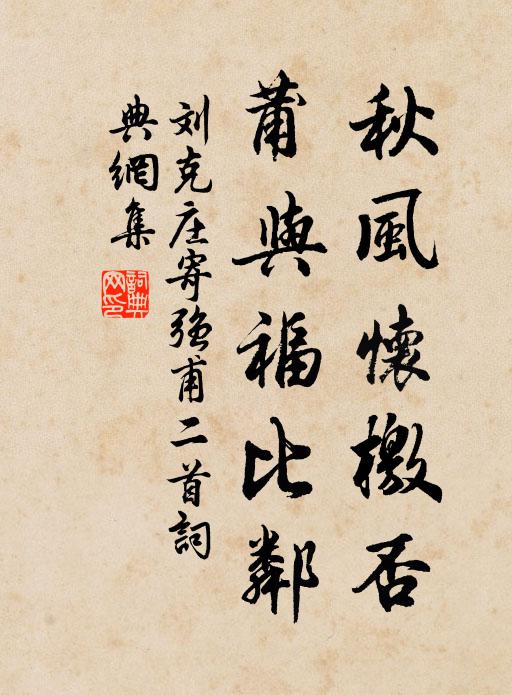 秋風懷檄否
莆與福比鄰
刘克庄寄強甫二首詞
典網集
詞典
网印